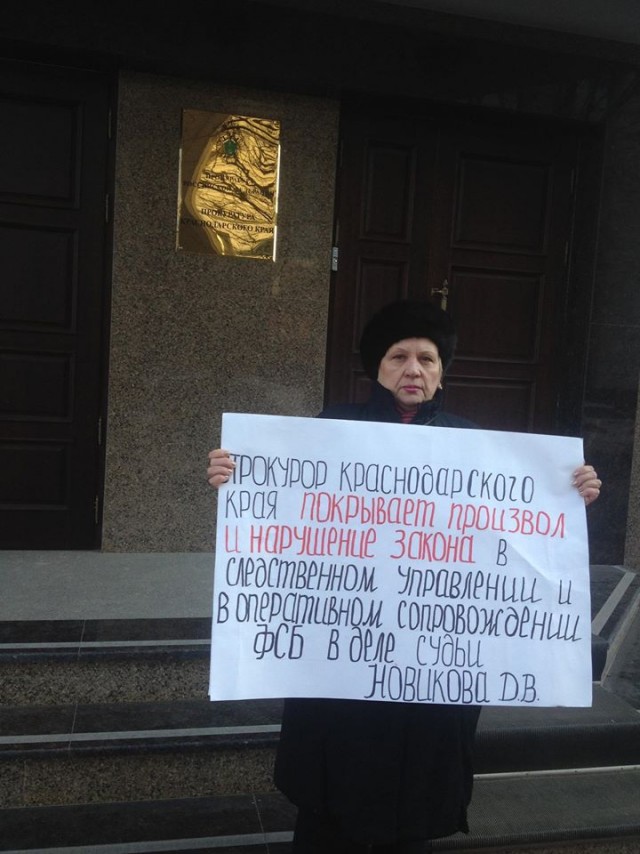 ПРОКУРАТУРА
КРАСНОДАРСКОГО КРАЯ
ПРОКУРОР КРАСНОДАРСКОГО
КРАЯ ПОКРЫВАЕТ ПРОИЗВОЛ
И НАРУШЕНИЕ ЗАКОНА В
СЛЕДСТВЕННОМ УПРАВЛЕНИИ И
В ОПЕРАТИВНОМ СОПРОВОЖДЕНИИ
ФСБ В ДЕЛЕ СУДЬИ
НОВИКОВА Д.В.